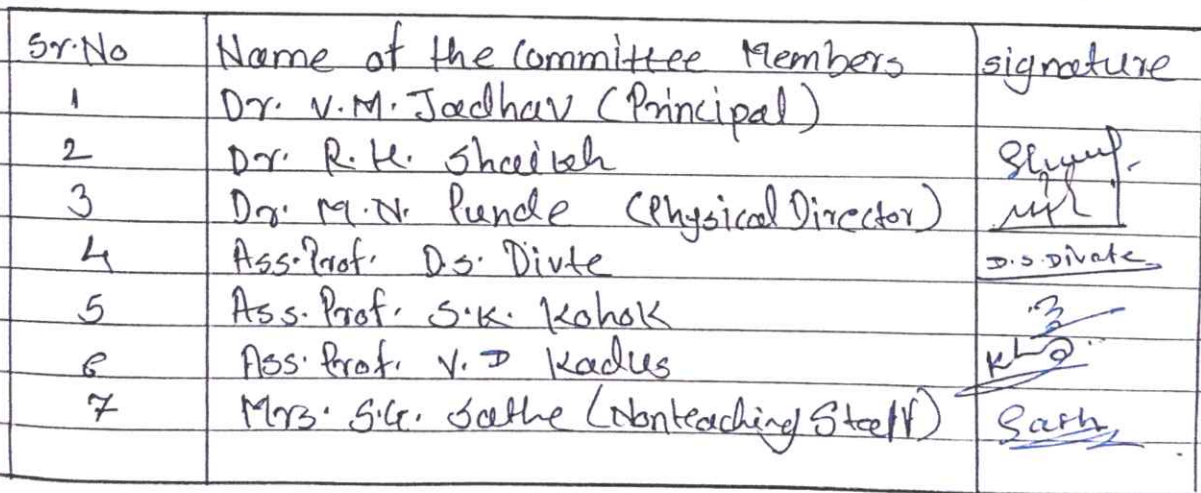 Sr.No Name of the Committee Members signature
1 Dr. V.M. Jadhav (Principal)
2 Dr. R.H. Shaikh
3 Dr. M.N. Punde (Physical Director)
4 Ass.Prof. D.S. Divte D.S.Divate
5 Ass. Prof. S.K. Kohok
6 Ass. Prof. V.D Kadus
7 Mrs. S.G. Sathe (Nonteaching Staff) Sath